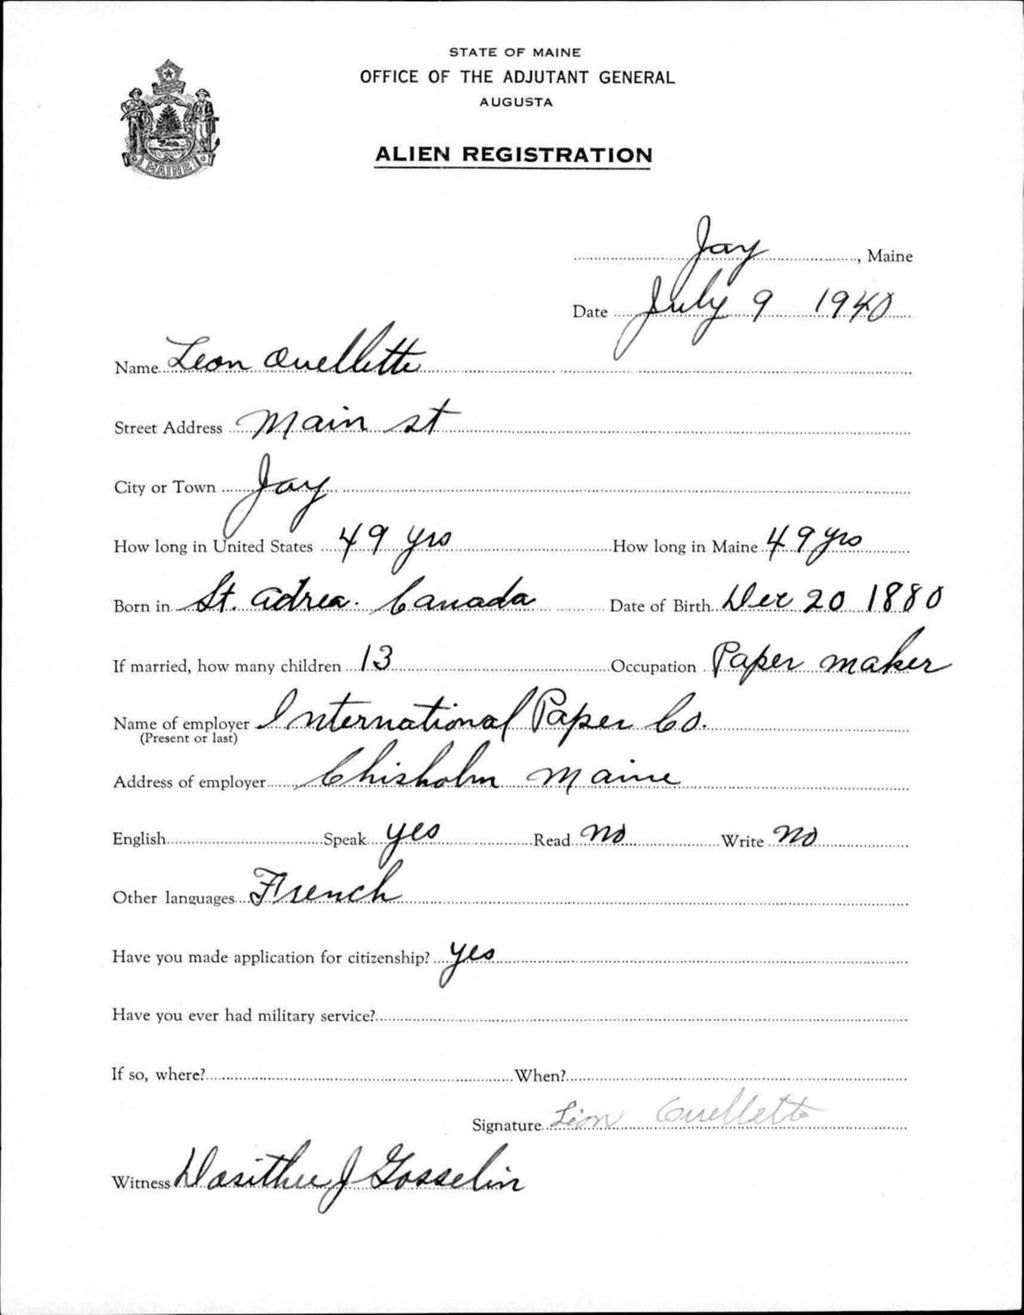 STATE OF MAINE
OFFICE OF THE ADJUTANT GENERAL
AUGUSTA
ALIEN REGISTRATION
MAINE
Jay, Maine
Date July 9 1940
Name Leon Ouellette
Street Address Main st
City or Town Jay
How long in United States 49 yrs How long in Maine 49 yrs
Born in St. Adrea. Canada Date of Birth Dec 20 1880
If married, how many children 13 Occupation Paper maker
Name of employer International Paper Co.
(Present or last)
Address of employer Chisholm Maine
English Speak yes Read no Write no
Other languages French
Have you made application for citizenship? yes
Have you ever had military service?
If so, where? When?
Signature Lion Ouellette
Witness Dosithee J Gosselin